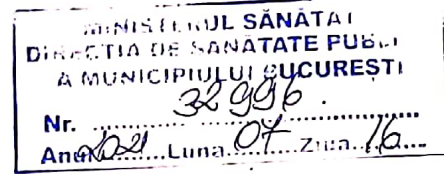 MINISTERUL SĂNĂTĂȚI
DIRECȚIA DE SĂNĂTATE PUBLI
A MUNICIPIULUI BUCUREȘTI
Nr. 32996.
Anul 2021 Luna 07 Ziua 16